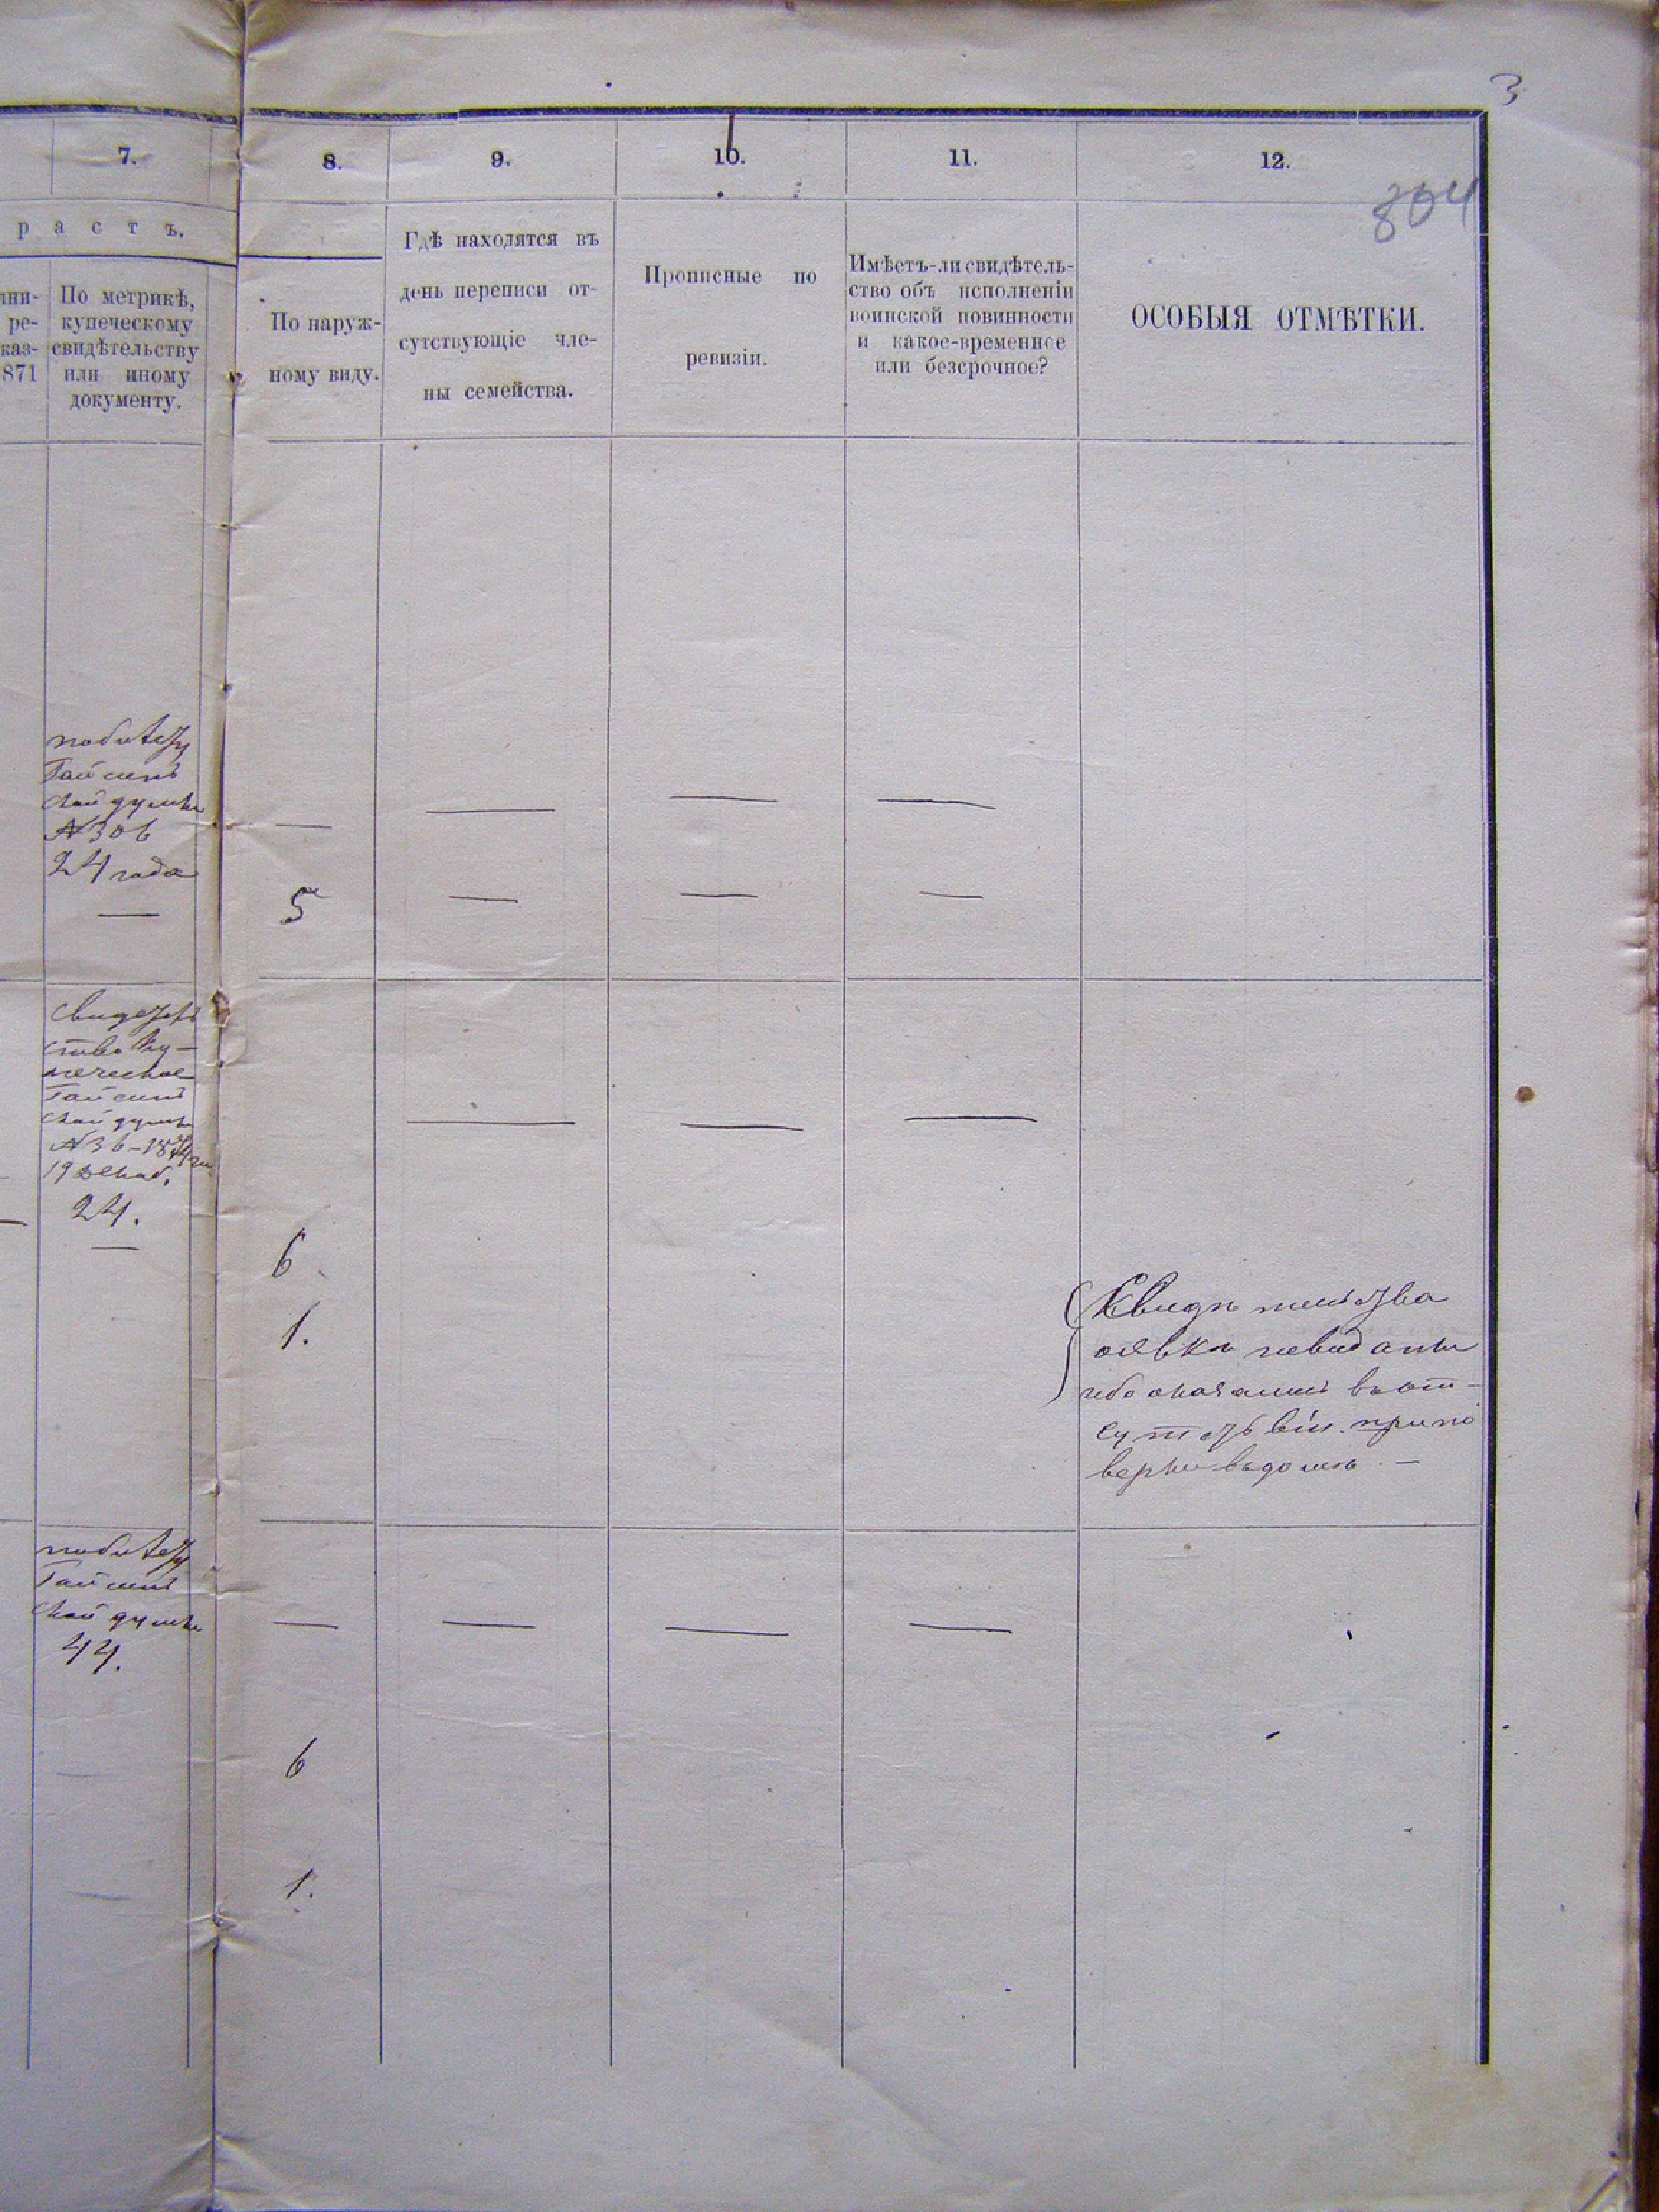 3
7.
8.
9.
10.
11.
12.
804
растъ.
лни-
ре-
каз-
871
По метрикѣ,
купеческому
свидѣтельству
или иному
документу.
По наруж-
ному виду.
Гдѣ находятся въ
день переписи от-
сутствующіе чле-
ны семейства.
Прописные по
ревизіи.
Имѣетъ-ли свидѣтель-
ство объ исполненіи
воинской повинности
и какое-временное
или безсрочное?
ОСОБЫЯ ОТМѢТКИ.
побилету
Гайсин
ской думы
№306
24 года
—
—
—
—
—
5
—
—
—
Свидетель
ство Ку-
печеское
Гайсин
ской думы
№36-1874
19 Декаб.
24.
—
—
—
—
6
1.
Свидѣтельства
оявкѣ невиданы
ибо оказались въот-
сутствіи при по
веркѣ
побилету
Гайсин
ской думы
44.
—
—
—
—
6
1.